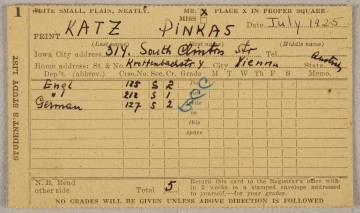 1 WRITE SMALL, PLAIN, NEATLY. MR. X PLACE X IN PROPER SQUARE
MISS
PRINT KATZ PINKAS Date July 1925
(Last name) (Middle name)
Iowa City address: 314 South Clinton Str Tel.
Home address: St. & No. City Vienna Austria
Dep't. (abbrev.) Crse.No. Sec. Cr. Grade M T W Th F S Memo.
Engl 125 S 2
" 212 S 1
German 127 S 2
Do
not
write
in
this
space
N. B. Read other side Total 5 Return this card to the Registrar's office within 2 weeks in a stamped envelope addressed to yourself,—for your grades.
NO GRADES WILL BE GIVEN UNLESS ABOVE DIRECTION IS FOLLOWED
STUDENT'S STUDY LIST